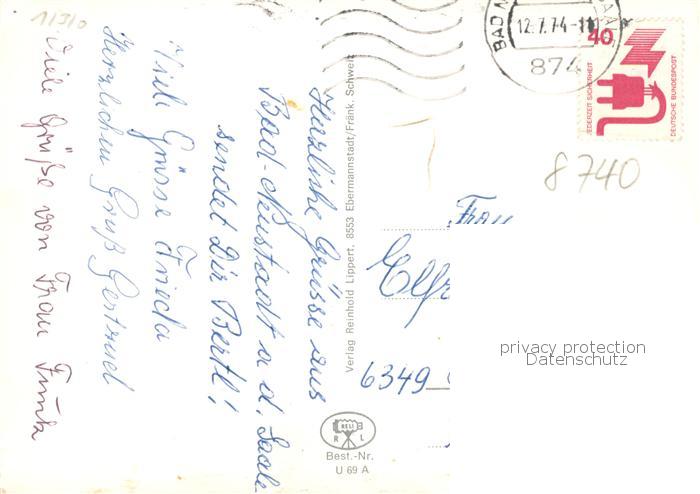 11/310
Herzliche Grüsse aus
Bad-Neustadt a d. Saale
sendet Dir Bertl!
Viele Grüsse Frieda
Herzlichen Gruß Gertrud
Viele Grüße von Frau Funk
Verlag Reinhold Lippert, 8553 Ebermannstadt/Fränk. Schweiz
BAD N
12.7.74-1
874
40
JEDERZEIT SICHERHEIT
DEUTSCHE BUNDESPOST
8740
Frau
Elfr
6349
privacy protection
Datenschutz
RELI
R L
Best.-Nr.
U 69 A